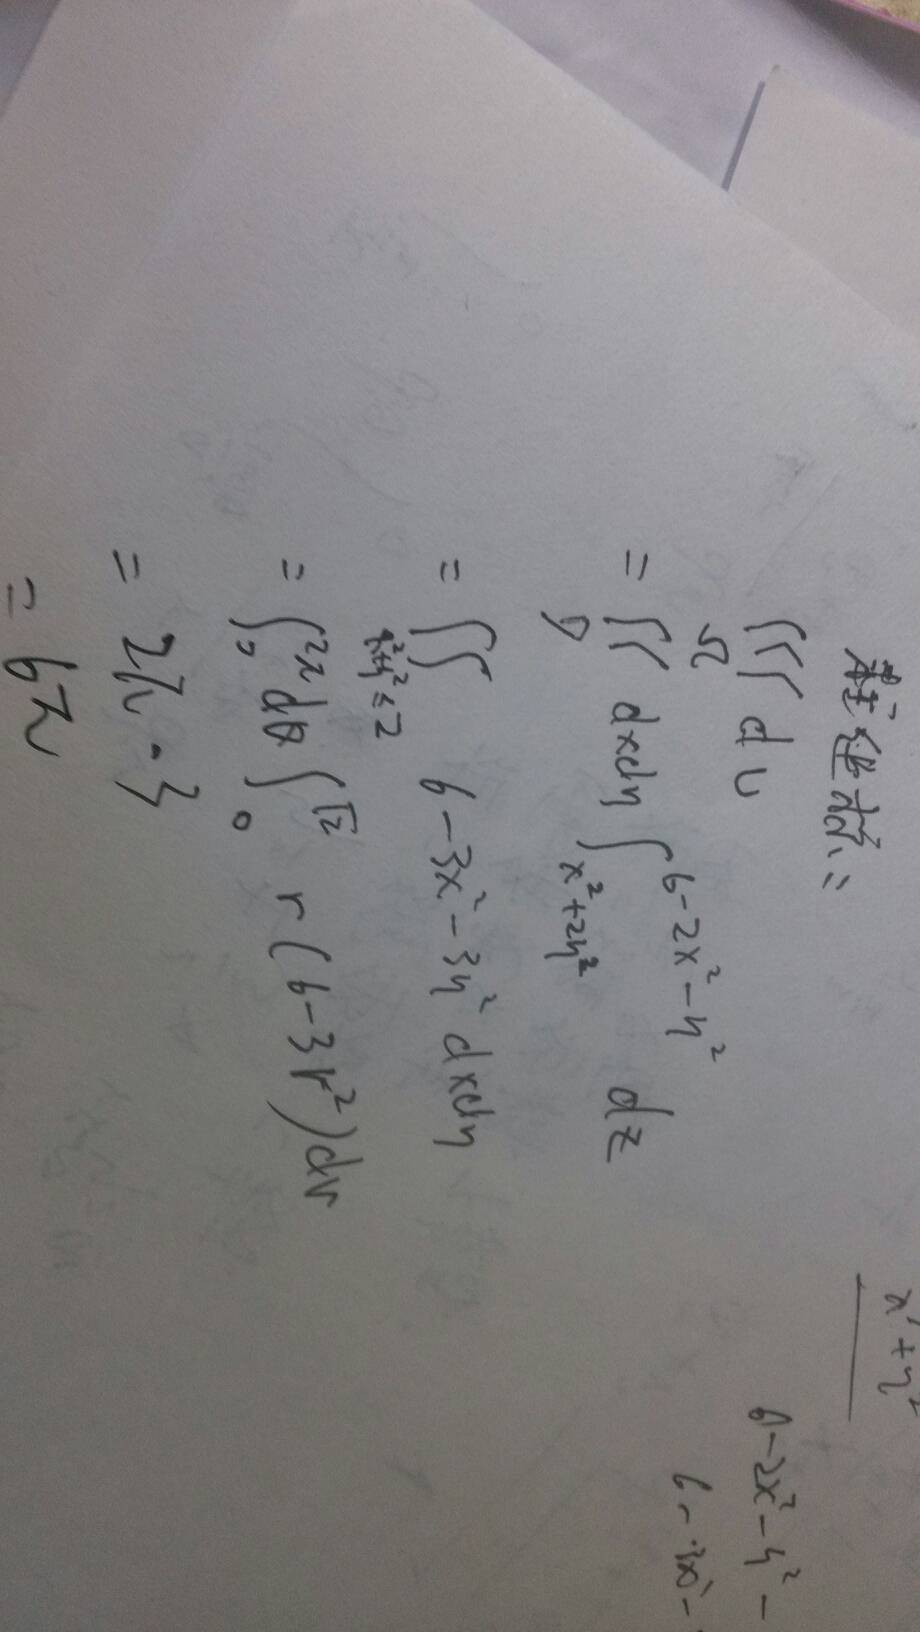 柱坐标:
∭_Ω dv
= ∬_D dxdy ∫_{x²+2y²}^{6-2x²-y²} dz
= ∬_{x²+y²≤2} 6-3x²-3y² dxdy
= ∫_0^{2π} dθ ∫_0^{√2} r(6-3r²)dr
= 2π·3
= 6π
x²+y²
6-2x²-y²-
6-3x²-